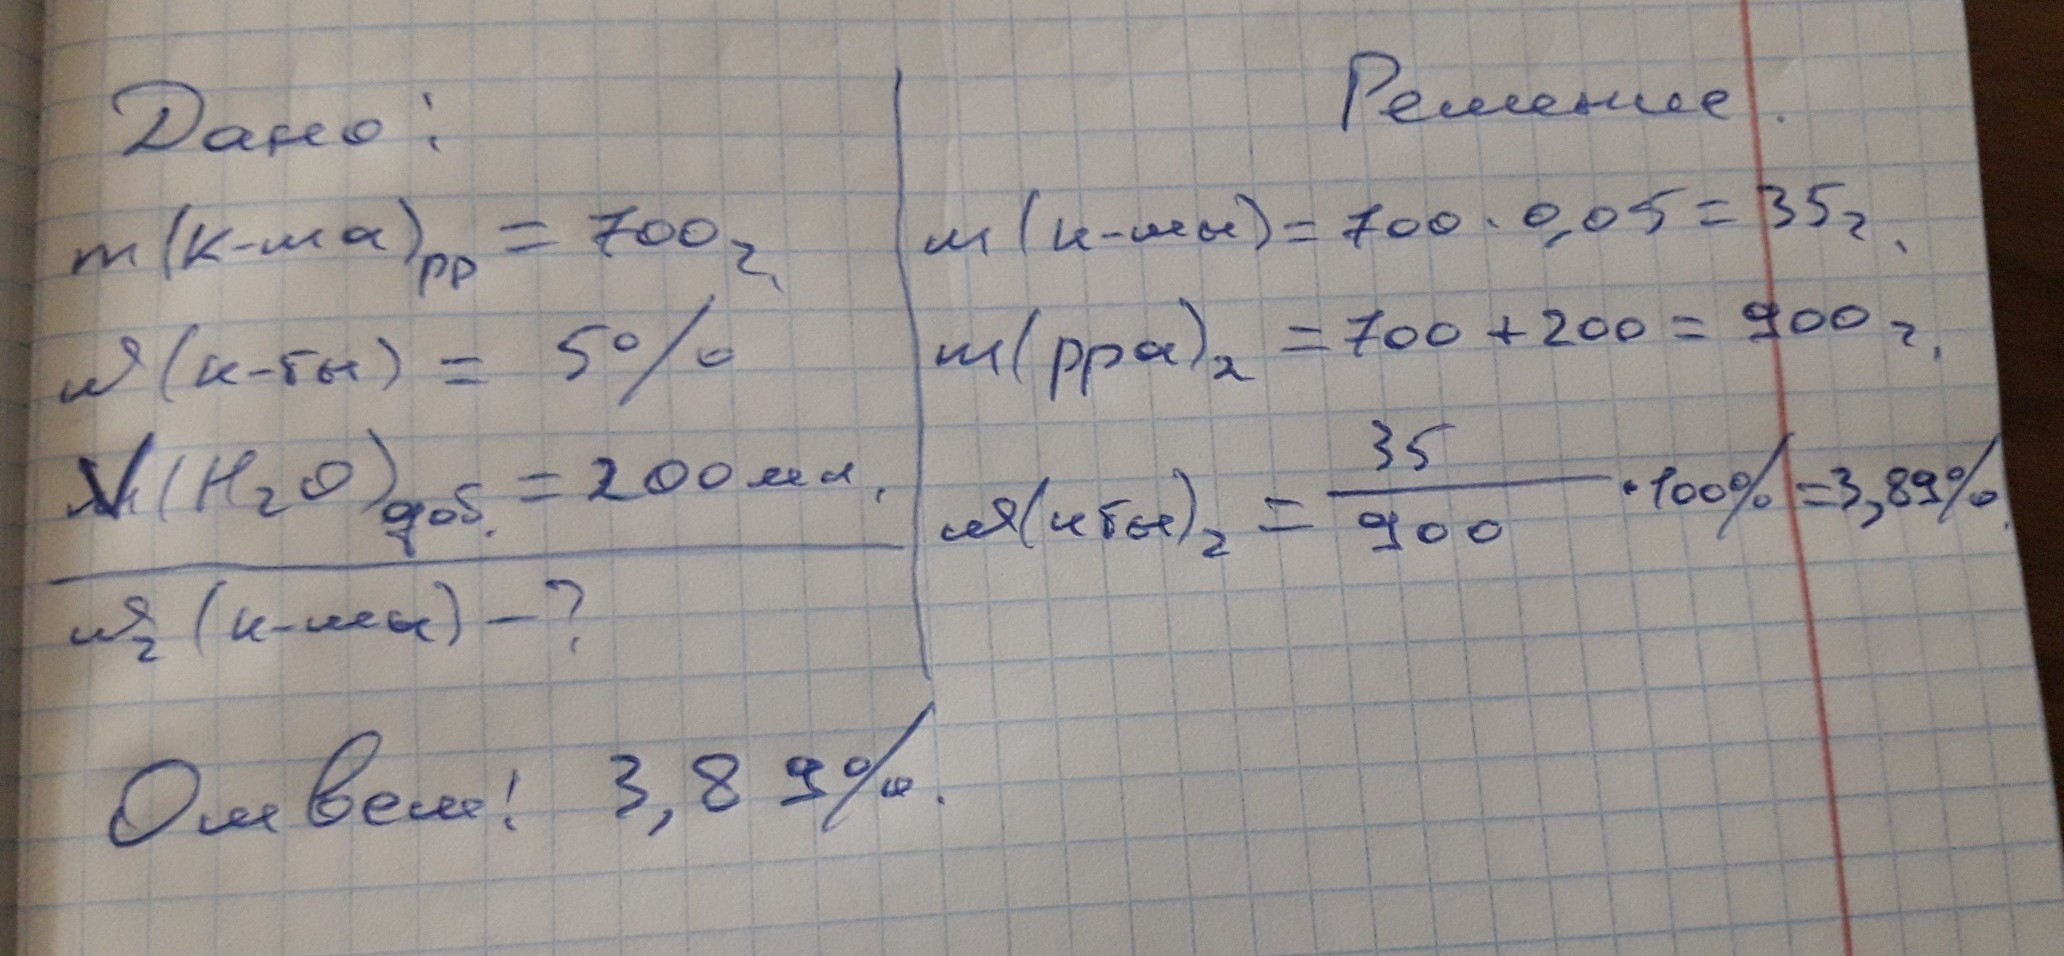 Дано:
m(к-та)рр = 700 г,
ω(к-ты) = 5%
V(H2O)доб. = 200 мл.
ω2(к-ты) - ?
Решение.
m(к-ты) = 700 · 0,05 = 35 г.
m(рра)2 = 700 + 200 = 900 г.
ω(кты)2 = 35/900 · 100% = 3,89%.
Ответ: 3,89%.